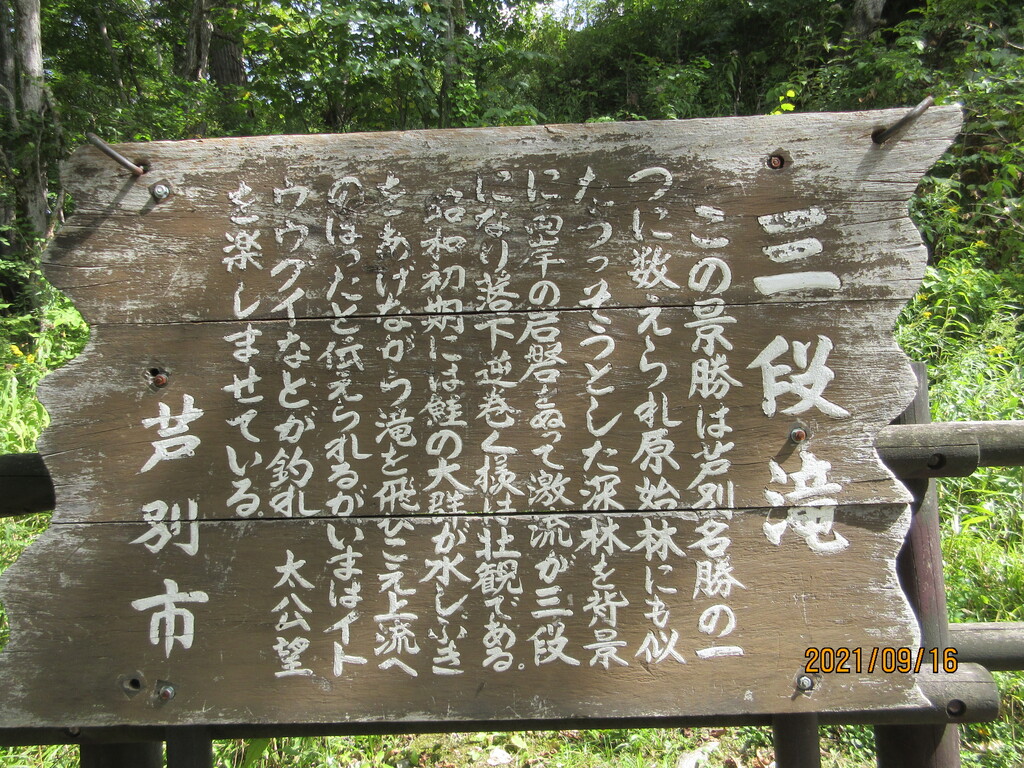 三段滝
この景勝は芦別名勝の一
つに数えられ原始林にも似
たうっそうとした深林を背景
に両岸の岩磐をぬって激流が三段
になり落下逆巻く様は壮観である。
昭和初期には鮭の大群が水しぶき
をあげながら滝を飛びこえ上流へ
のぼったと伝えられるがいまはイト
ウウグイなどが釣れ 太公望
を楽しませている。
芦別市
2021/09/16